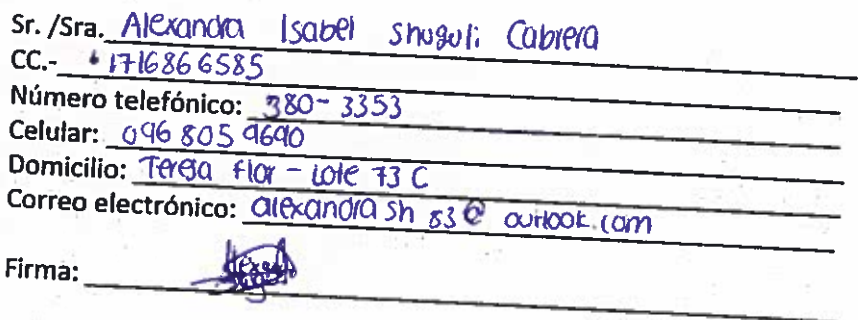 Sr. /Sra. Alexandra Isabel Shuguli Cabrera
CC.- 1716866585
Número telefónico: 380-3353
Celular: 096 805 9690
Domicilio: Teresa Flor - Lote 73 C
Correo electrónico: alexandra sh 83@ outlook.com
Firma: